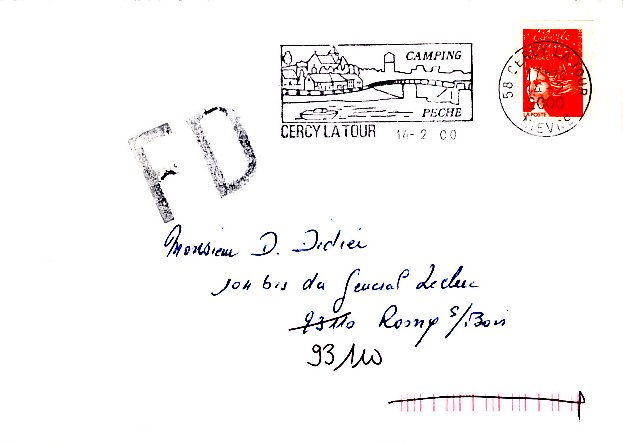 CAMPING
PECHE
CERCY LA TOUR 14-2 00
58 CERCY LA TOUR
2000
NIEVRE
LA POSTE
FD
Monsieur D. Didier
104 bis du General Leclerc
93110 Rosny s/Bois
93110